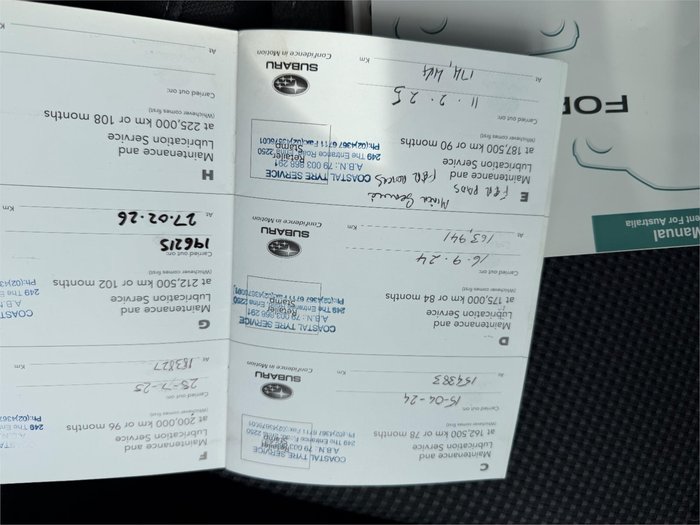 C
Maintenance and
Lubrication Service
at 162,500 km or 78 months
(Whichever comes first)
Carried out on:
15-04-24
At
154383
Km
COASTAL TYRE SERVICE
A.B.N.: 79 003 868 291
249 The Entrance Road, Erina 2250
Ph:(02)4367 6711 Fax:(02)43676601
Retailer
Stamp
SUBARU
Confidence in Motion
D
Maintenance and
Lubrication Service
at 175,000 km or 84 months
(Whichever comes first)
Carried out on:
16-9-24
At
163,941
Km
COASTAL TYRE SERVICE
A.B.N.: 79 003 868 291
249 The Entrance Road, Erina 2250
Ph:(02)4367 6711 Fax:(02)43676601
Retailer
Stamp
SUBARU
Confidence in Motion
E
F&R PADS
F&R ROTORS
Minor Service
Maintenance and
Lubrication Service
at 187,500 km or 90 months
(Whichever comes first)
Carried out on:
11-2-25
At
174,414
Km
COASTAL TYRE SERVICE
A.B.N.: 79 003 868 291
249 The Entrance Road, Erina 2250
Ph:(02)4367 6711 Fax:(02)43676601
Retailer
Stamp
SUBARU
Confidence in Motion
F
Maintenance and
Lubrication Service
at 200,000 km or 96 months
(Whichever comes first)
Carried out on:
At
183827
Km
249 The E
Ph:(02)4367
G
Maintenance and
Lubrication Service
at 212,500 km or 102 months
(Whichever comes first)
Carried out on:
196215
At
27.02.26
Km
COASTA
A.B.N
249 The En
Ph:(02)4367
H
Maintenance and
Lubrication Service
at 225,000 km or 108 months
(Whichever comes first)
Carried out on:
At
Km
Manual
ent For Australia
FOR